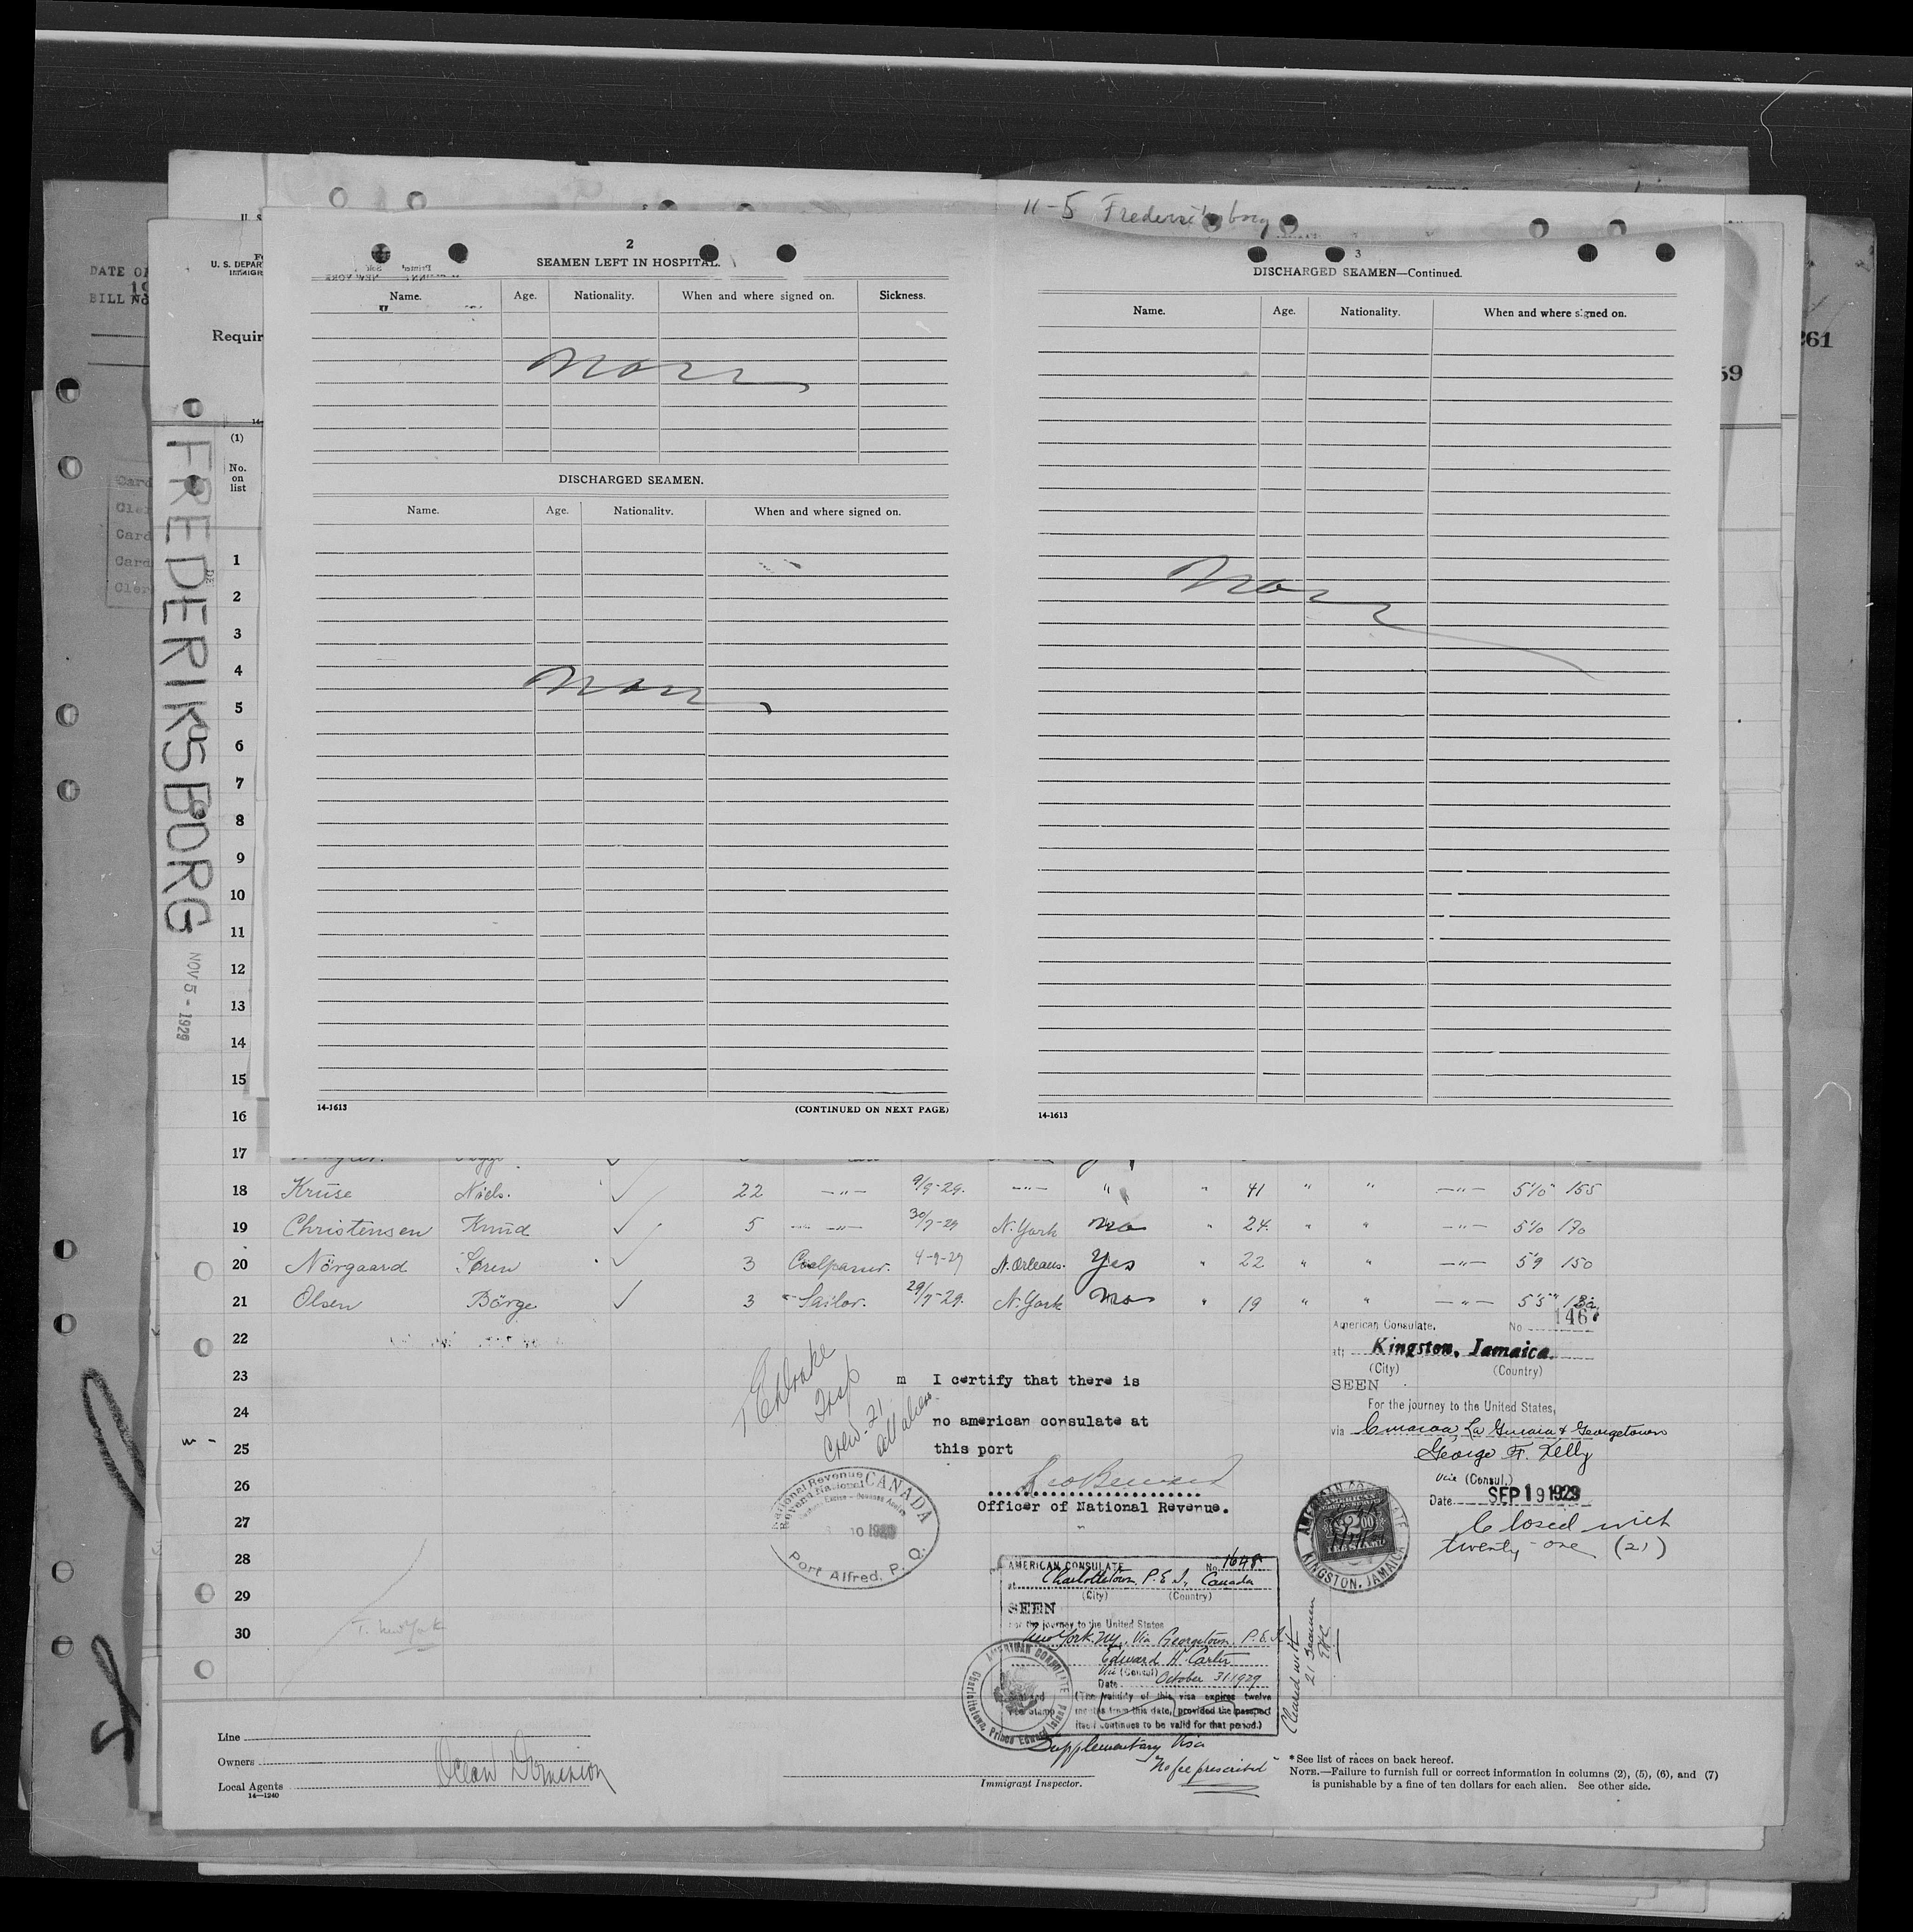 11-5 Frederiksborg
DATE OF
BILL No
19
U. S
U. S. DEPAR
IMMIGR
Requir
261
59
Card
Card
Card
FREDERIKSBORG
NOV 5 - 1929
2
SEAMEN LEFT IN HOSPITAL.
Name. Age. Nationality. When and where signed on. Sickness.
DISCHARGED SEAMEN.
Name. Age. Nationality. When and where signed on.
14-1613 (CONTINUED ON NEXT PAGE)
3
DISCHARGED SEAMEN—Continued.
Name. Age. Nationality. When and where signed on.
14-1613
(1)
No.
on
list
1
2
3
4
5
6
7
8
9
10
11
12
13
14
15
16
17
18 Kruse Niels. ✓ 22 —"— 9/9-29. —"— " " 41 " " —"— 5'10" 155
19 Christensen Knud ✓ 5 —"— 30/7-29 N. York no " 24. " " —"— 5'10 170
20 Nörgaard Sören ✓ 3 Coalpasser. 4-9-29 N. Orleans. Yes " 22 " " —"— 5'9 150
21 Olsen Börge ✓ 3 Sailor. 29/7-29. N. York no " 19 " " —"— 5'5"
22
23
24
25
26
27
28
29
30
Crew-21
all aliens
I certify that there is
no american consulate at
this port
Officer of National Revenue.
National Revenue CANADA
Revenu National
Port Alfred, P. Q.
American Consulate, No 1467
at Kingston, Jamaica.
(City) (Country)
SEEN
For the journey to the United States,
via Curacoa, La Guaira & Georgetown
George F. Kelly
Vice (Consul.)
Date SEP 19 1929
Closed with
twenty-one (21)
AMERICAN CONSULATE
KINGSTON, JAMAICA
$2.00
FEE STAMP
AMERICAN CONSULATE No 1648
at Charlottetown, P. E. I., Canada
(City) (Country)
SEEN
For the journey to the United States
New York, NY, Via Georgetown, P. E. I.
Edward H. Carter
Vice (Consul)
Date October 31 1929
(The validity of this visa expires twelve
months from this date, provided the passport
itself continues to be valid for that period.)
AMERICAN CONSULATE
Charlottetown, Prince Edward Island
Supplementary Visa
"No fee prescribed"
Cleared with
21 Seamen
EHC
T. New York
Line
Owners
Local Agents Ocean Dominion
14—1240
Immigrant Inspector.
*See list of races on back hereof.
NOTE.—Failure to furnish full or correct information in columns (2), (5), (6), and (7)
is punishable by a fine of ten dollars for each alien. See other side.